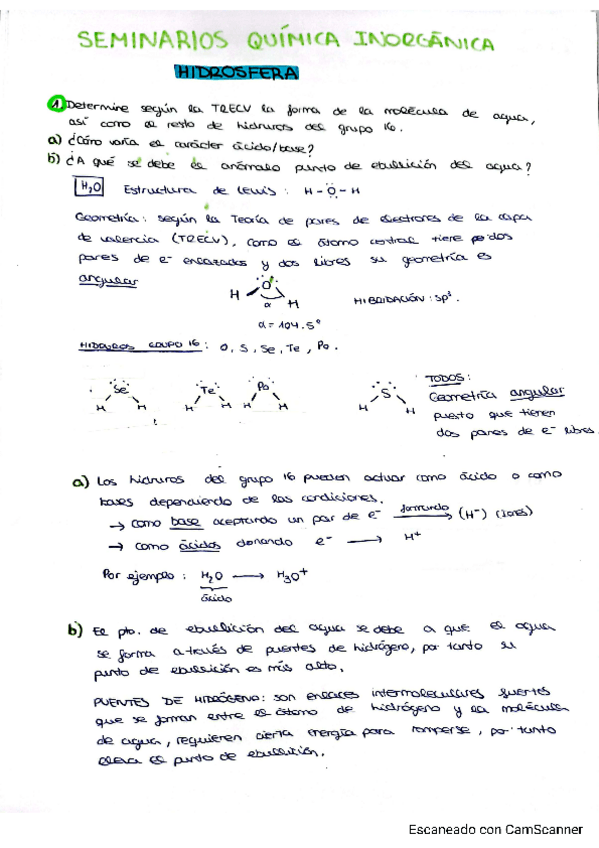 SEMINARIOS QUÍMICA INORGÁNICA
HIDROSFERA
1. Determine según la TRECV la forma de la molécula de agua,
así como el resto de hidruros del grupo 16.
a) ¿Cómo varía el carácter ácido/base?
b) ¿A qué se debe el anómalo punto de ebullición del agua?
H2O Estructura de Lewis : H - O - H
Geometría : según la Teoría de pares de electrones de la capa
de valencia (TRECV), como el átomo central tiene dos
pares de e- enlazados y dos libres su geometría es
angular
O
H H
α
HIBRIDACIÓN : sp3.
α = 104.5°
HIDRUROS GRUPO 16 : O, S, Se, Te, Po.
Se Te Po S
H H H H H H H H
TODOS :
Geometría angular
puesto que tienen
dos pares de e- libres
a) Los hidruros del grupo 16 pueden actuar como ácido o como
bases dependiendo de las condiciones.
→ Como base aceptando un par de e- formando → (H-) (iones)
→ como ácidos donando e- → H+
Por ejemplo : H2O → H3O+
ácido
b) El pto. de ebullición del agua se debe a que el agua
se forma a través de puentes de hidrógeno, por tanto su
punto de ebullición es más alto.
PUENTES DE HIDRÓGENO: son enlaces intermoleculares fuertes
que se forman entre el átomo de hidrógeno y la molécula
de agua, requieren cierta energía para romperse, por tanto
eleva el punto de ebullición.
Escaneado con CamScanner